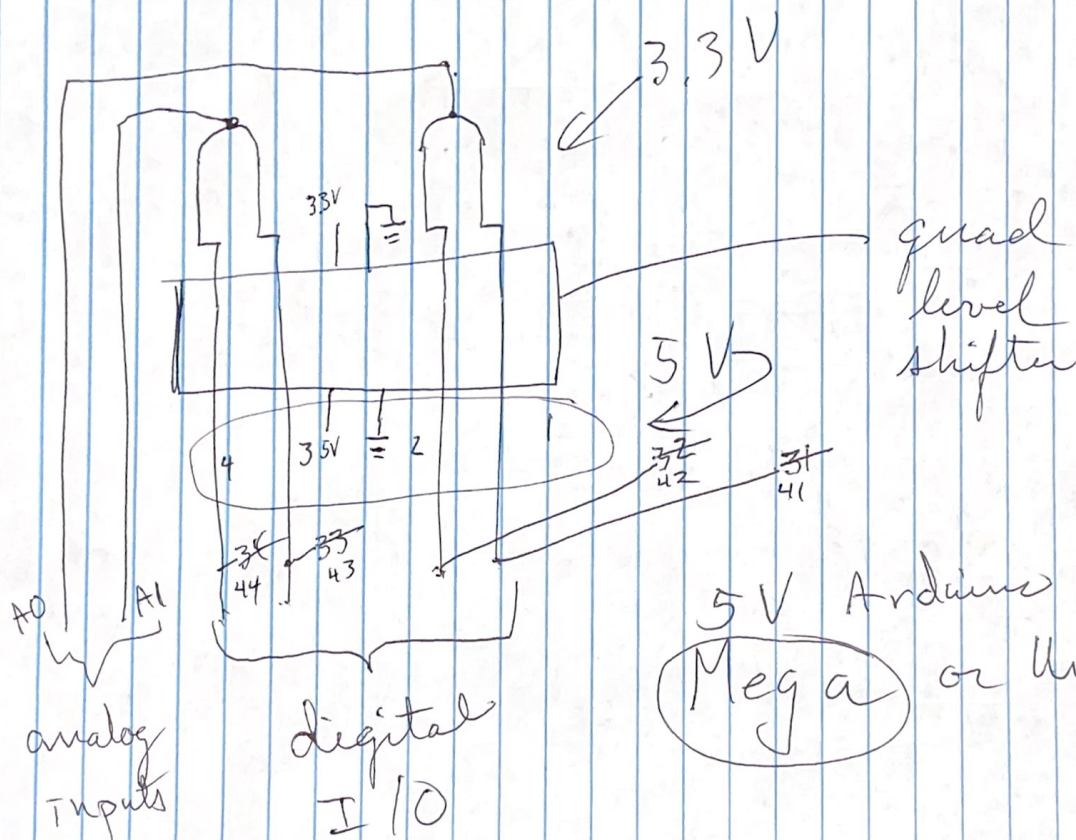 3.3 V
33V
quad
level
shifter
5 V
4
35V
2
1
32
42
31
41
34
44
33
43
A0
A1
5 V Arduino
Mega or
analog
inputs
digital
I/O